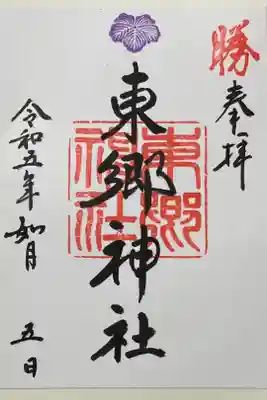 勝
奉拝
東郷神社
東郷神社
令和五年如月 五日